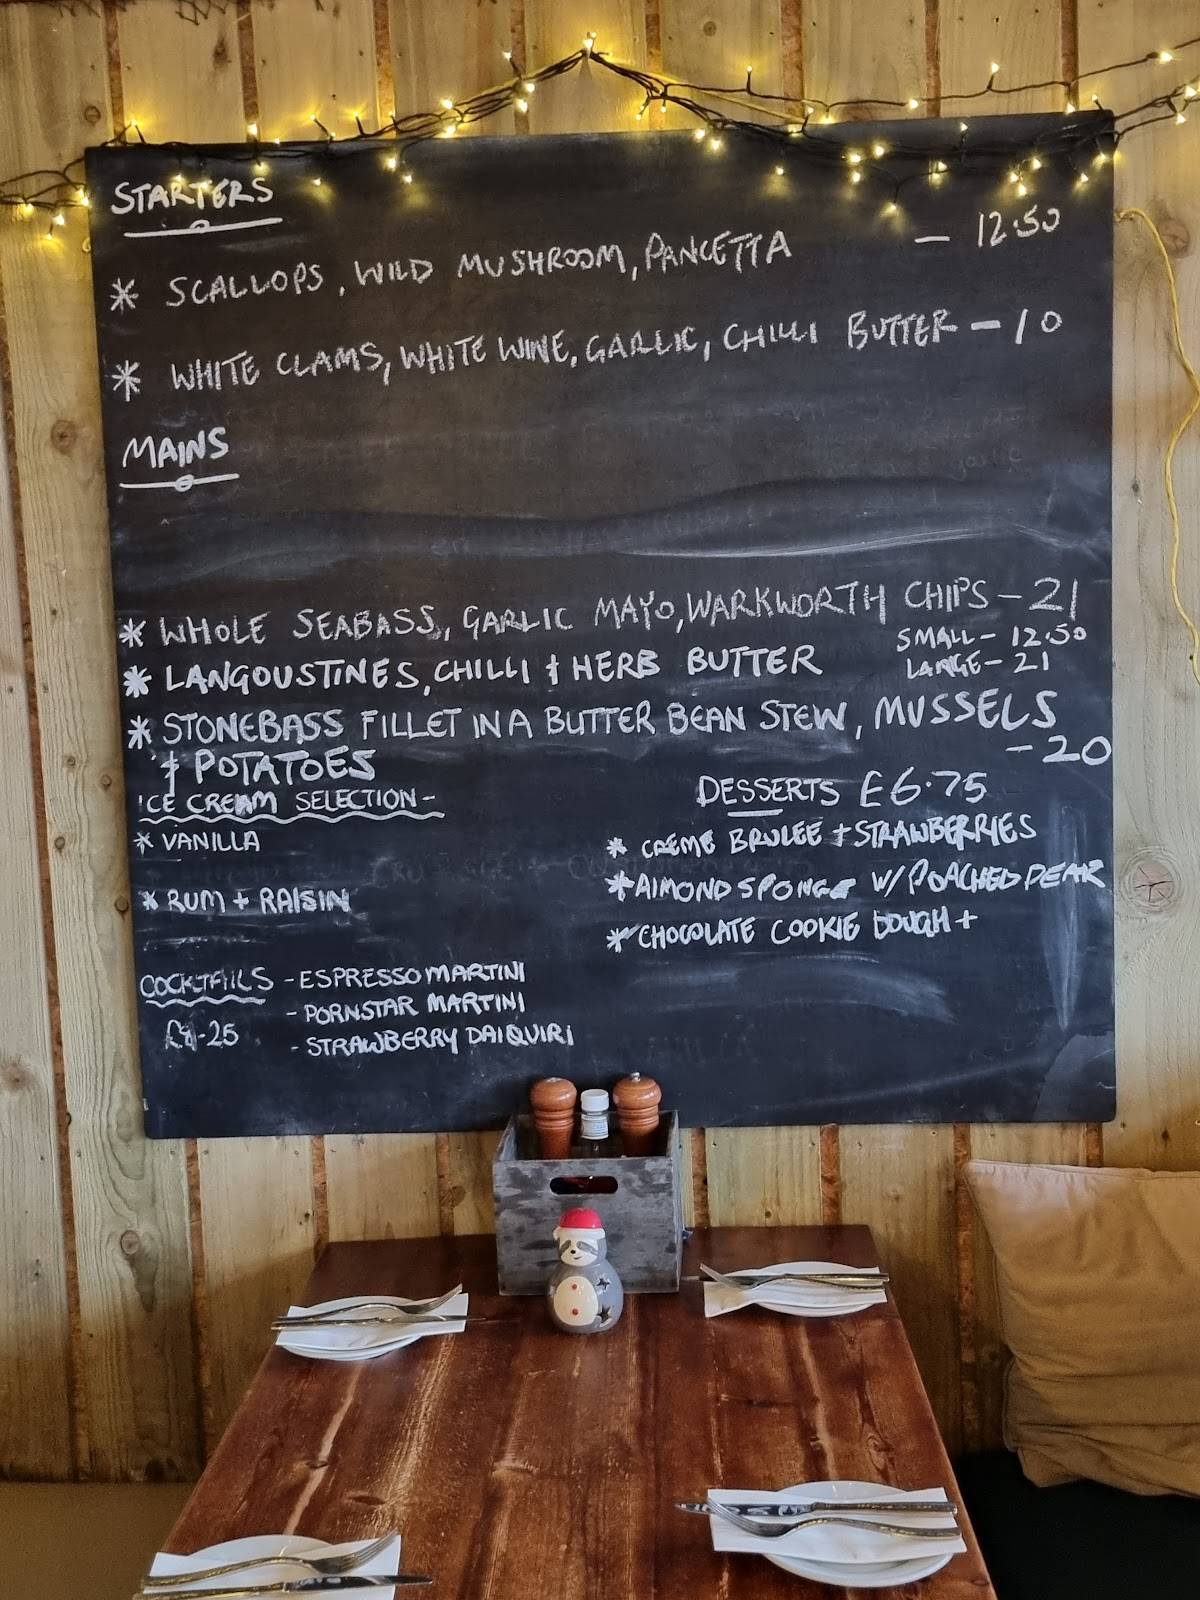 STARTERS
* SCALLOPS, WILD MUSHROOM, PANCETTA — 12.50
* WHITE CLAMS, WHITE WINE, GARLIC, CHILLI BUTTER — 10
MAINS
* WHOLE SEABASS, GARLIC MAYO, WARKWORTH CHIPS - 21
* LANGOUSTINES, CHILLI & HERB BUTTER
SMALL - 12.50
LARGE - 21
* STONEBASS FILLET IN A BUTTER BEAN STEW, MUSSELS
& POTATOES - 20
ICE CREAM SELECTION -
* VANILLA
* RUM + RAISIN
DESSERTS £6.75
* CREME BRULEE + STRAWBERRIES
* ALMOND SPONGE W/ POACHED PEAR
* CHOCOLATE COOKIE DOUGH +
COCKTAILS - ESPRESSO MARTINI
- PORNSTAR MARTINI
- STRAWBERRY DAIQUIRI